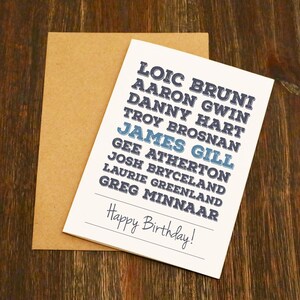 LOIC BRUNI
AARON GWIN
DANNY HART
TROY BROSNAN
JAMES GILL
GEE ATHERTON
JOSH BRYCELAND
LAURIE GREENLAND
GREG MINNAAR
Happy Birthday!